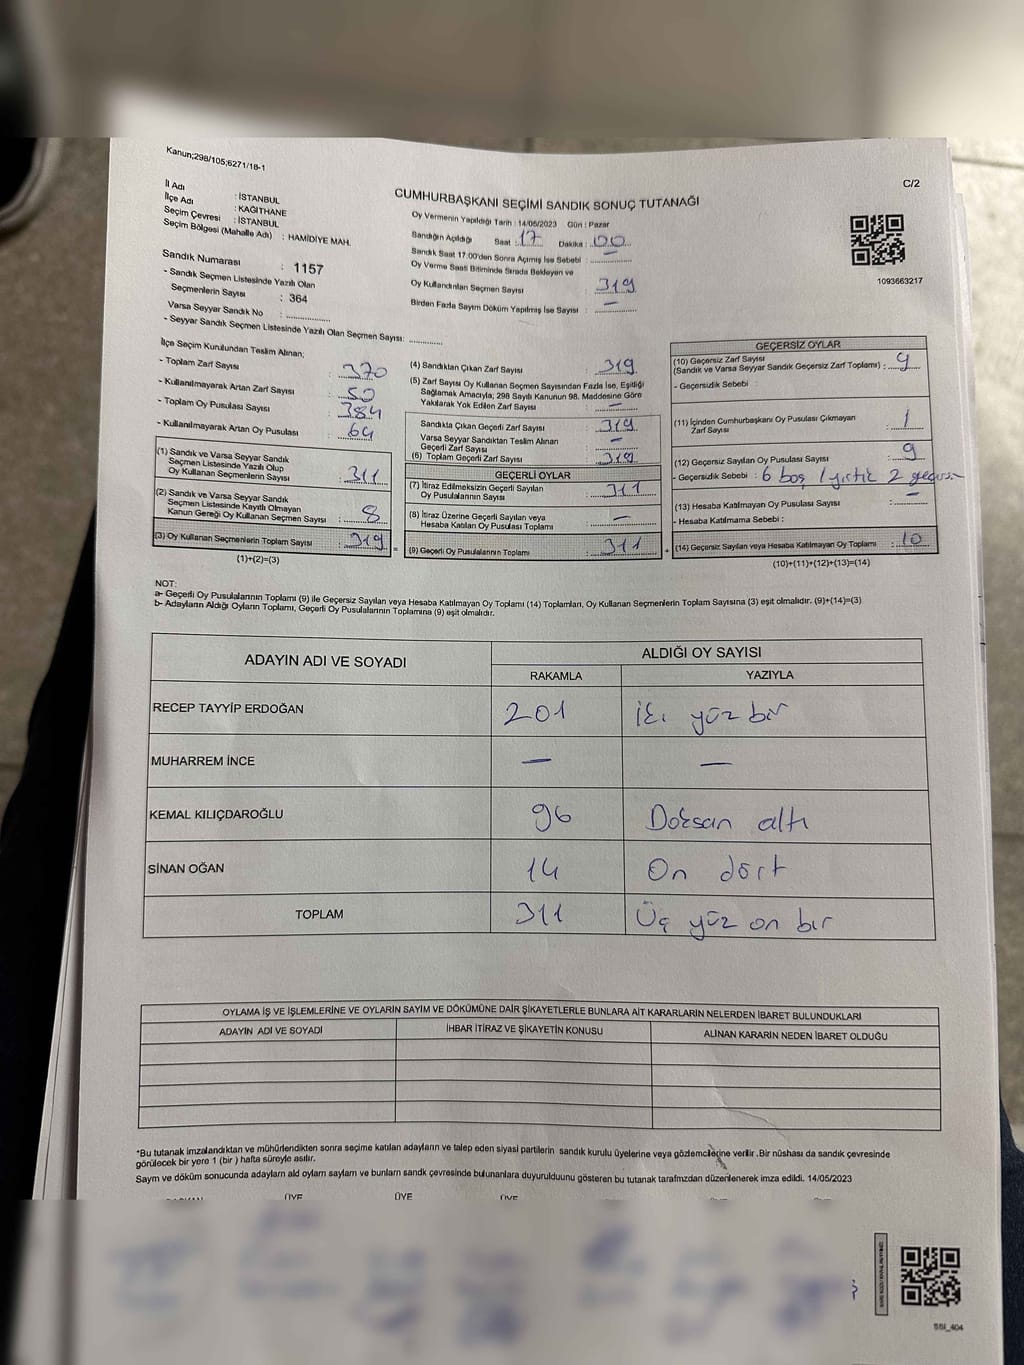 Kanun;298/105;6271/18-1
C/2
İl Adı : İSTANBUL
İlçe Adı : KAĞITHANE
Seçim Çevresi : İSTANBUL
Seçim Bölgesi (Mahalle Adı) : HAMİDİYE MAH.
Sandık Numarası : 1157
- Sandık Seçmen Listesinde Yazılı Olan
Seçmenlerin Sayısı : 364
Varsa Seyyar Sandık No :
- Seyyar Sandık Seçmen Listesinde Yazılı Olan Seçmen Sayısı:
CUMHURBAŞKANI SEÇİMİ SANDIK SONUÇ TUTANAĞI
Oy Vermenin Yapıldığı Tarih : 14/05/2023 Gün : Pazar
Sandığın Açıldığı Saat : 17 Dakika : 00
Sandık Saat 17.00'den Sonra Açımış İse Sebebi : —
Oy Verme Saati Bitiminde Sırada Bekleyen ve
Oy Kullandırılan Seçmen Sayısı : 319
Birden Fazla Sayım Döküm Yapılmış İse Sayısı : —
1093663217
İlçe Seçim Kurulundan Teslim Alınan;
- Toplam Zarf Sayısı : 370
- Kullanılmayarak Artan Zarf Sayısı : 50
- Toplam Oy Pusulası Sayısı : 384
- Kullanılmayarak Artan Oy Pusulası : 64
(1) Sandık ve Varsa Seyyar Sandık
Seçmen Listesinde Yazılı Olup
Oy Kullanan Seçmenlerin Sayısı : 311
(2) Sandık ve Varsa Seyyar Sandık
Seçmen Listesinde Kayıtlı Olmayan
Kanun Gereği Oy Kullanan Seçmen Sayısı : 8
(3) Oy Kullanan Seçmenlerin Toplam Sayısı : 319 =
(1)+(2)=(3)
(4) Sandıktan Çıkan Zarf Sayısı : 319
(5) Zarf Sayısı Oy Kullanan Seçmen Sayısından Fazla İse, Eşitliği
Sağlamak Amacıyla; 298 Sayılı Kanunun 98. Maddesine Göre
Yakılarak Yok Edilen Zarf Sayısı : —
Sandıkta Çıkan Geçerli Zarf Sayısı : 319
Varsa Seyyar Sandıktan Teslim Alınan
Geçerli Zarf Sayısı : —
(6) Toplam Geçerli Zarf Sayısı : 319
GEÇERLİ OYLAR
(7) İtiraz Edilmeksizin Geçerli Sayılan
Oy Pusulalarının Sayısı : 311
(8) İtiraz Üzerine Geçerli Sayılan veya
Hesaba Katılan Oy Pusulası Toplamı : —
(9) Geçerli Oy Pusulalarının Toplamı : 311 +
GEÇERSİZ OYLAR
(10) Geçersiz Zarf Sayısı
(Sandık ve Varsa Seyyar Sandık Geçersiz Zarf Toplamı) : 9
- Geçersizlik Sebebi :
(11) İçinden Cumhurbaşkanı Oy Pusulası Çıkmayan
Zarf Sayısı : 1
(12) Geçersiz Sayılan Oy Pusulası Sayısı : 9
- Geçersizlik Sebebi : 6 boş 1 yırtık 2 geçersiz
(13) Hesaba Katılmayan Oy Pusulası Sayısı : —
- Hesaba Katılmama Sebebi :
(14) Geçersiz Sayılan veya Hesaba Katılmayan Oy Toplamı : 10
(10)+(11)+(12)+(13)=(14)
NOT:
a- Geçerli Oy Pusulalarının Toplamı (9) ile Geçersiz Sayılan veya Hesaba Katılmayan Oy Toplamı (14) Toplamları, Oy Kullanan Seçmenlerin Toplam Sayısına (3) eşit olmalıdır. (9)+(14)=(3)
b- Adayların Aldığı Oyların Toplamı, Geçerli Oy Pusulalarının Toplamına (9) eşit olmalıdır.
ADAYIN ADI VE SOYADI ALDIĞI OY SAYISI
RAKAMLA YAZIYLA
RECEP TAYYİP ERDOĞAN 201 iki yüz bir
MUHARREM İNCE — —
KEMAL KILIÇDAROĞLU 96 Doksan altı
SİNAN OĞAN 14 On dört
TOPLAM 311 Üç yüz on bir
OYLAMA İŞ VE İŞLEMLERİNE VE OYLARIN SAYIM VE DÖKÜMÜNE DAİR ŞİKAYETLERLE BUNLARA AİT KARARLARIN NELERDEN İBARET BULUNDUKLARI
ADAYIN ADI VE SOYADI İHBAR İTİRAZ VE ŞİKAYETİN KONUSU ALINAN KARARIN NEDEN İBARET OLDUĞU
*Bu tutanak imzalandıktan ve mühürlendikten sonra seçime katılan adayların ve talep eden siyasi partilerin sandık kurulu üyelerine veya gözlemcilerine verilir .Bir nüshası da sandık çevresinde
görülecek bir yere 1 (bir ) hafta süreyle asılır.
Sayım ve döküm sonucunda adayların ald oyların sayların ve bunların sandk çevresinde bulunanlara duyurulduunu gösteren bu tutanak tarafmzdan düzenlenerek imza edildi. 14/05/2023
ÜYE ÜYE ÜYE
SSI_404